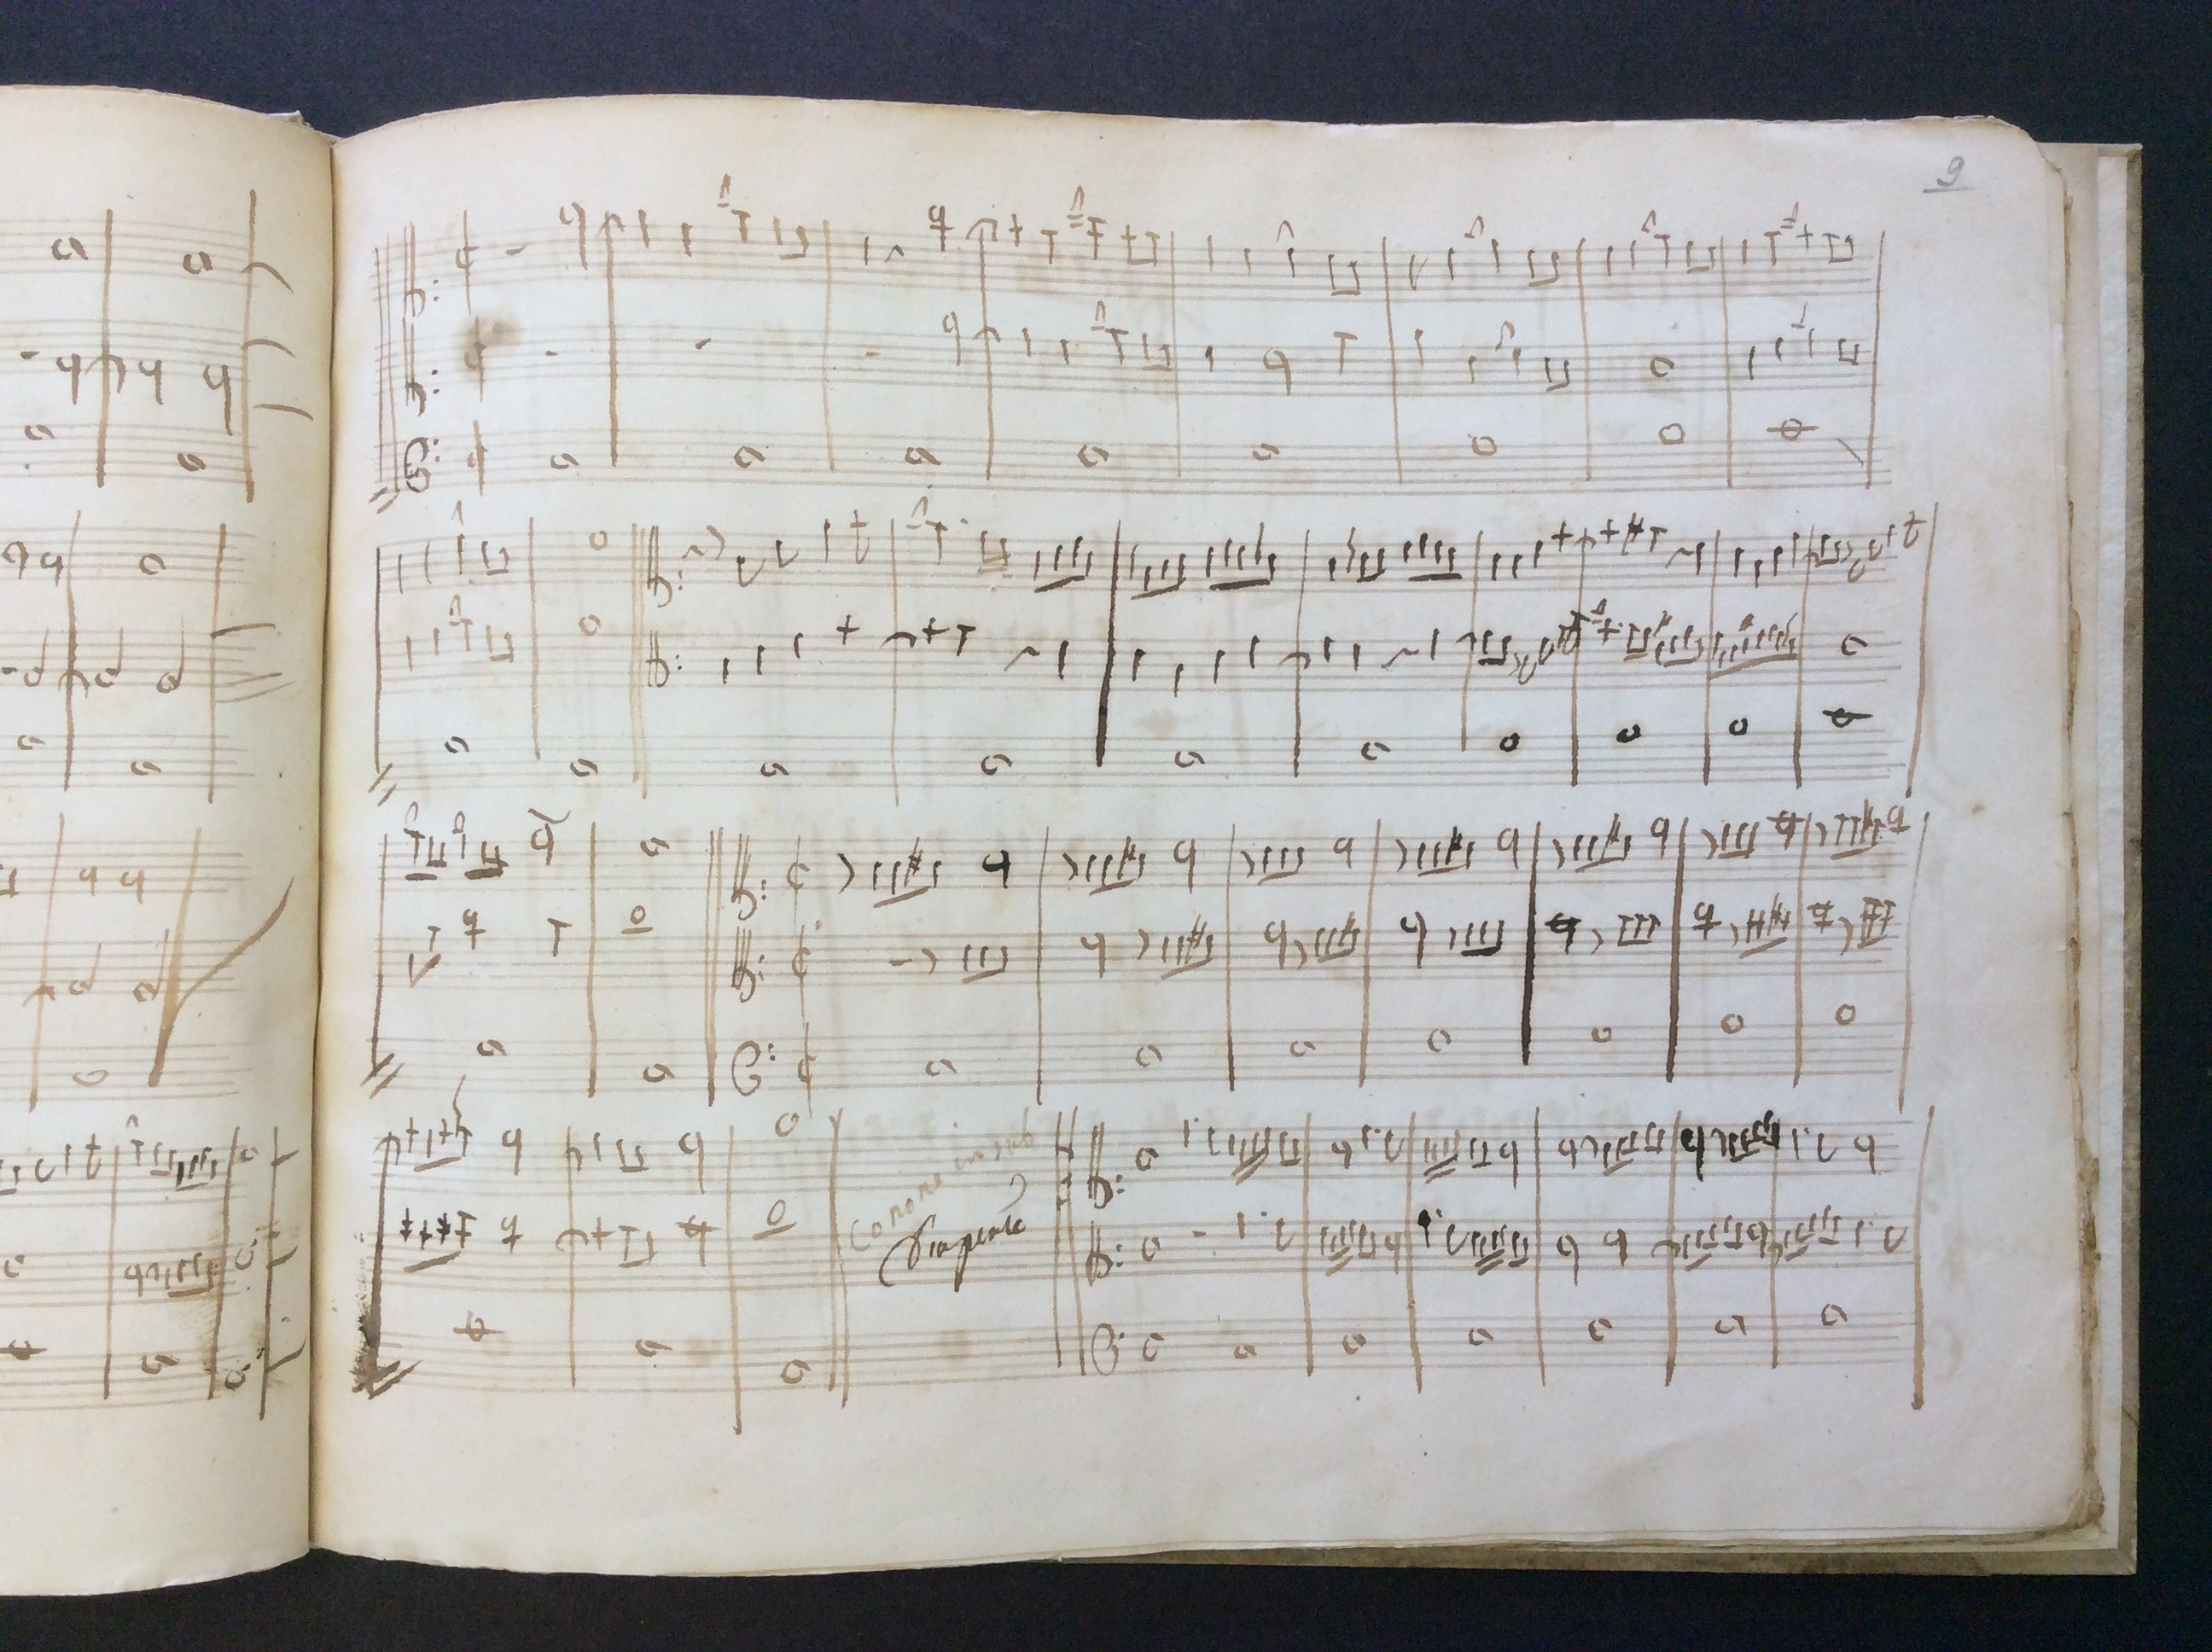 9
Canone in sub
Diapente